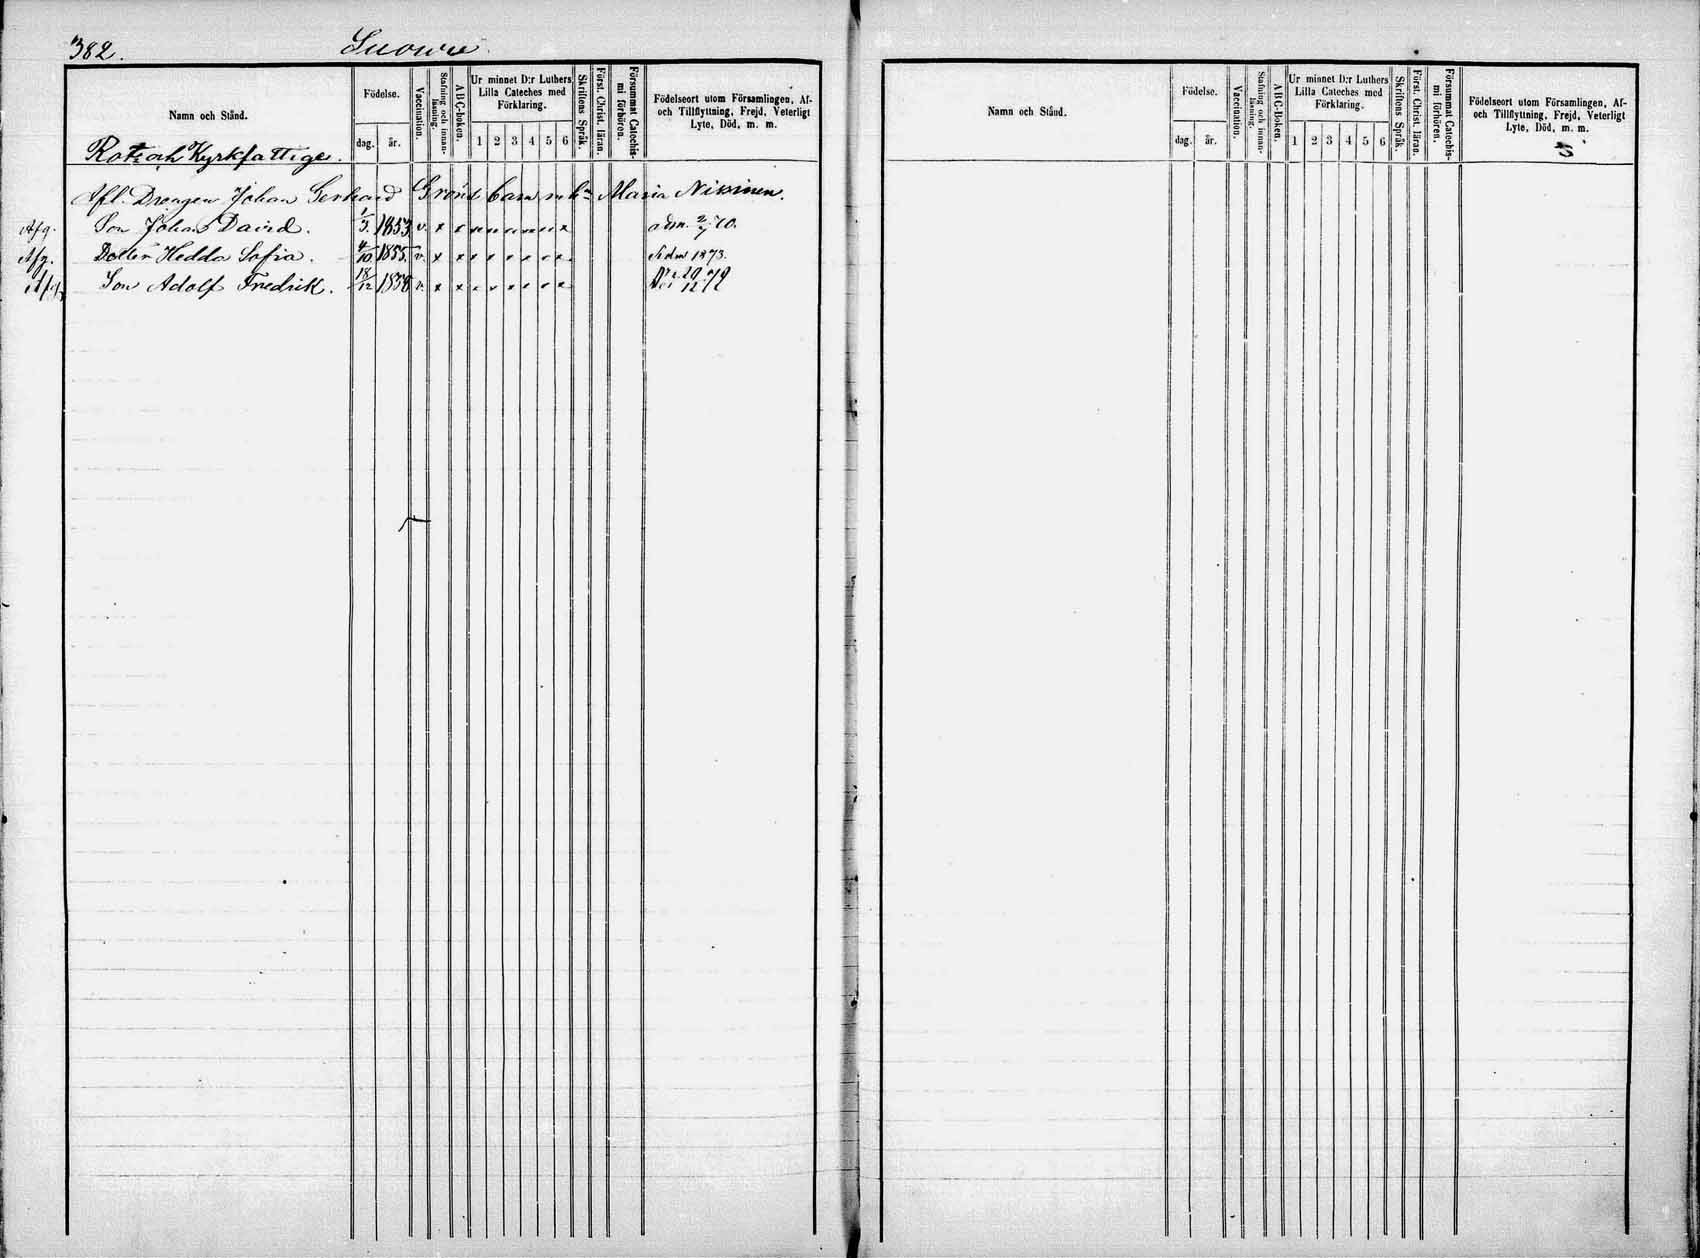 382.
Suowre
Namn och Stånd.
Födelse.
dag.
år.
Vaccination.
Stafning och innan-
läsning.
ABC-boken.
Ur minnet D:r Luthers
Lilla Cateches med
Förklaring.
1 2 3 4 5 6
Skriftens Språk.
Först. Christ. läran.
Försummat Catechis-
mi förhören.
Födelseort utom Församlingen, Af-
och Tillflyttning, Frejd, Veterligt
Lyte, Död, m. m.
Rote och Kyrkfattige.
Afl. Drängen Johan Gerhard Grönd Barn m h Maria Nissinen.
Afg. Son Johan David. 1/3 1853 v. x x adm. 2/7 70.
Afg. Dotter Hedda Sofia. 4/10 1855 v. x x x x x x x x 1873.
Afg. Son Adolf Fredrik. 18/12 1858 v. x x x x x x x x
Namn och Stånd.
Födelse.
dag.
år.
Vaccination.
Stafning och innan-
läsning.
ABC-Boken.
Ur minnet D:r Luthers
Lilla Cateches med
Förklaring.
1 2 3 4 5 6
Skriftens Språk.
Först. Christ. läran.
Försummat Catechis-
mi förhören.
Födelseort utom Församlingen, Af-
och Tillflyttning, Frejd, Veterligt
Lyte, Död, m. m.